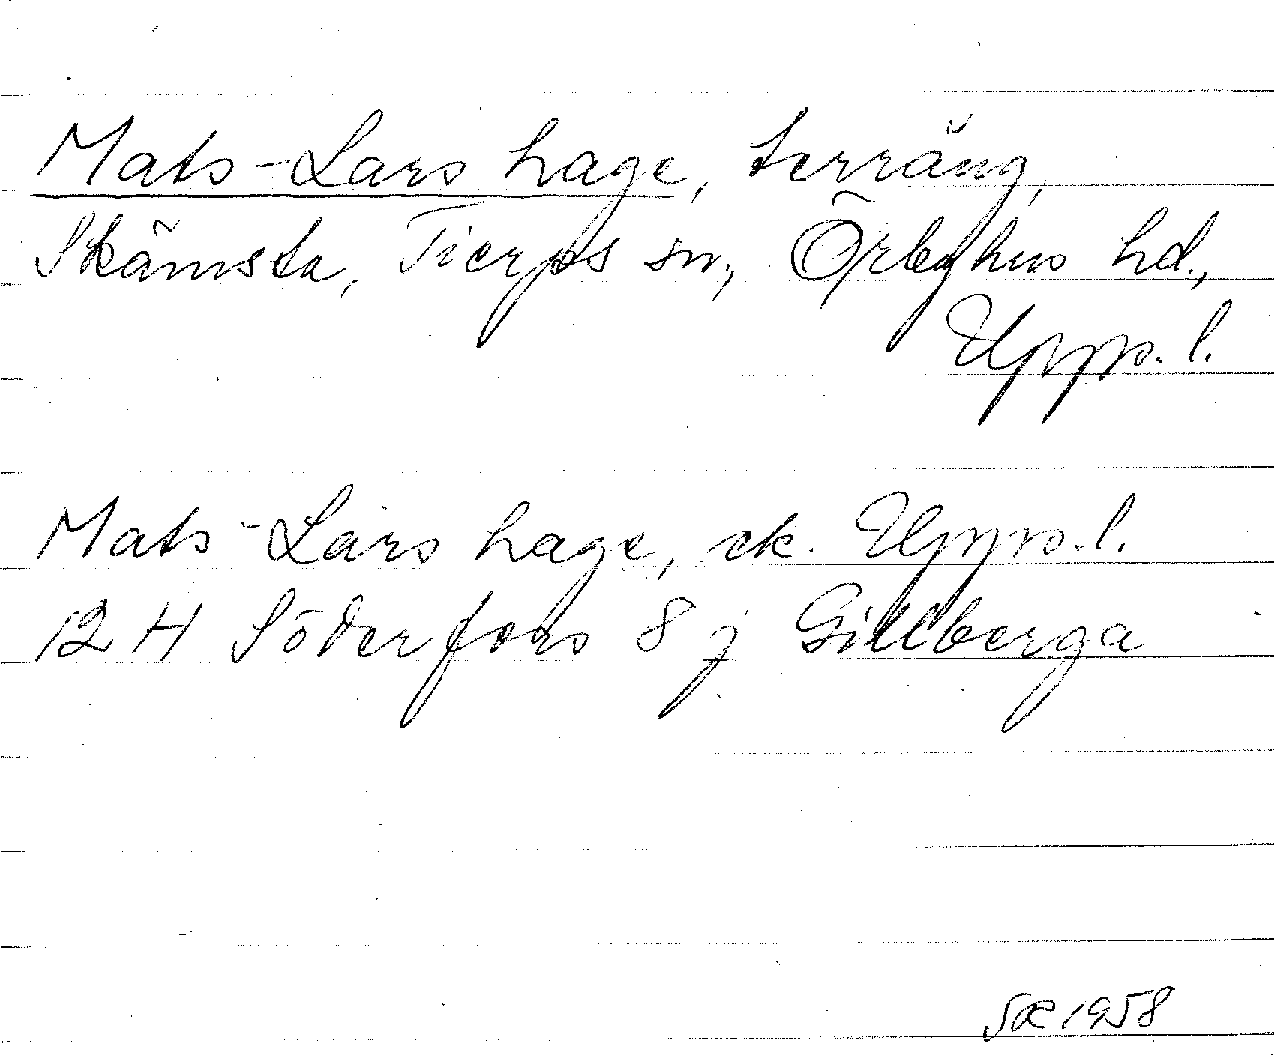 Mats-Lars hage, terräng,
Skämsta, Tierps sn, Örbyhus hd.,
Upps. l.
Mats-Lars hage, ek. Upps. l.
12 H Söderfors 8 j Gillberga
1958